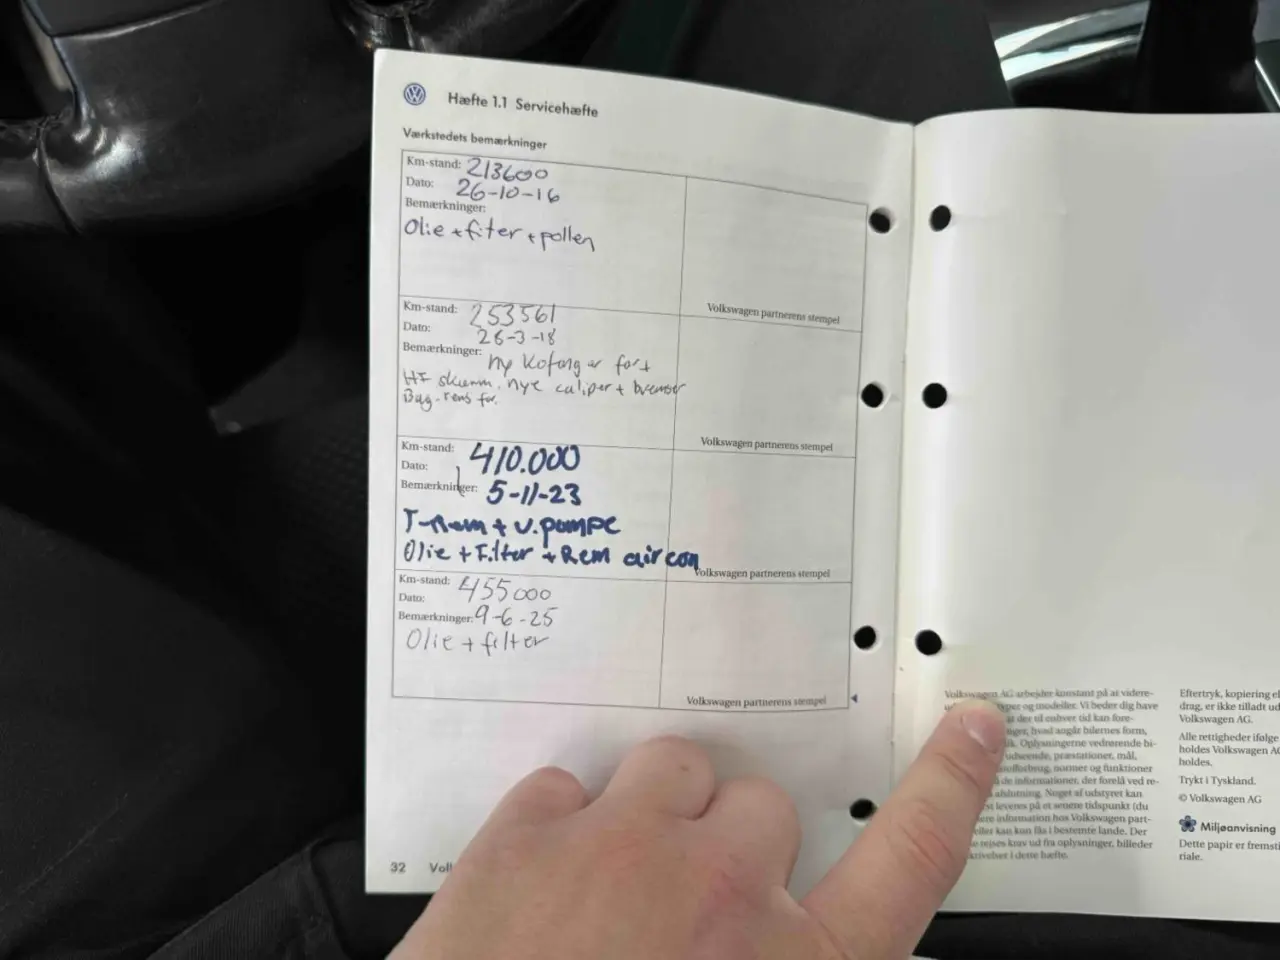 Hæfte 1.1 Servicehæfte
Værkstedets bemærkninger
Km-stand: 213600
Dato: 26-10-16
Bemærkninger:
Olie + filter + pollen
Volkswagen partnerens stempel
Km-stand: 253561
Dato: 26-3-18
Bemærkninger: ny Kofanger for +
HF skærm. nye caliper + bremser
Bag. rens for.
Volkswagen partnerens stempel
Km-stand: 410.000
Dato:
Bemærkninger: 5-11-23
T-Rem + V.pompe
Olie + Filter + Rem aircon
Volkswagen partnerens stempel
Km-stand: 455000
Dato:
Bemærkninger: 9-6-25
Olie + filter
Volkswagen partnerens stempel
32
Volkswagen AG arbejder konstant på at videre-
og modeller. Vi beder dig have
at der til enhver tid kan fore-
hvad angår bilernes form,
Oplysningerne vedrørende bi-
udseende, præstationer, mål,
normer og funktioner
de informationer, der forelå ved re-
afslutning. Noget af udstyret kan
leveres på et senere tidspunkt (du
information hos Volkswagen part-
eller kan kun fås i bestemte lande. Der
rejses krav ud fra oplysninger, billeder
i dette hæfte.
Eftertryk, kopiering el
drag, er ikke tilladt ud
Volkswagen AG.
Alle rettigheder ifølge
holdes Volkswagen AG
holdes.
Trykt i Tyskland.
© Volkswagen AG
Miljøanvisning
Dette papir er fremsti
riale.